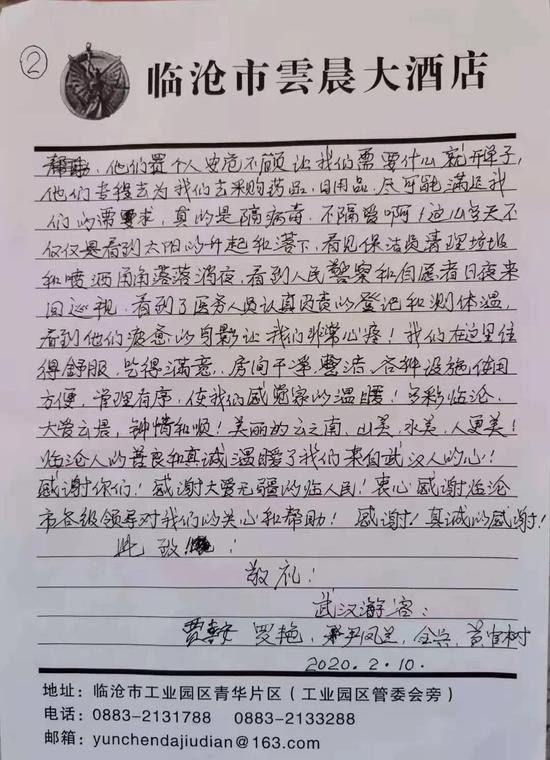 ②
临沧市雲晨大酒店
他们置个人安危不顾让我们需要什么就开单子,
他们专程去为我们去采购药品、日用品、尽可能满足我
们的需要求,真的是隔病毒,不隔爱啊!这几多天不
仅仅是看到太阳的升起和落下,看见保洁员清理垃圾
和喷洒角角落落消夜,看到人民警察和自愿者日夜来
回巡视,看到了医务人员认真负责的登记和测体温,
看到他们疲惫的身影让我们非常心疼!我们在这里住
得舒服,吃得满意,房间干净整洁、各种设施使用
方便,管理有序,使我们感觉家的温暖!多彩临沧,
大爱云县,钟情和顺!美丽的云之南、山美,水美,人更美!
临沧人的善良和真诚温暖了我们来自武汉人的心!
感谢你们!感谢大爱无疆的临人民!衷心感谢临沧
市各级领导对我们的关心和帮助!感谢!真诚的感谢!
此致!
敬礼!
武汉游客:
罗艳,尹凤兰,
2020.2.10.
地址:临沧市工业园区青华片区(工业园区管委会旁)
电话:0883-2131788 0883-2133288
邮箱:yunchendajiudian@163.com